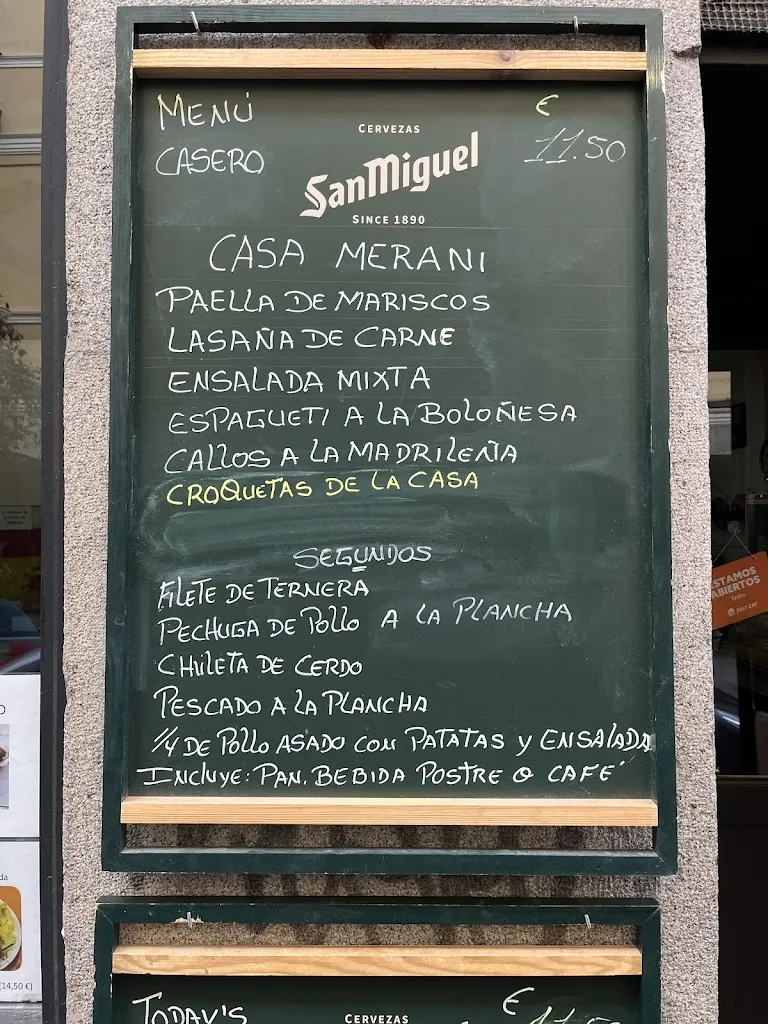 MENÚ €
CERVEZAS
CASERO 11.50
SanMiguel
SINCE 1890
CASA MERANI
PAELLA DE MARISCOS
LASAÑA DE CARNE
ENSALADA MIXTA
ESPAGUETI A LA BOLOÑESA
CALLOS A LA MADRILEÑA
CROQUETAS DE LA CASA
SEGUNDOS
FILETE DE TERNERA
PECHUGA DE POLLO A LA PLANCHA
CHULETA DE CERDO
PESCADO A LA PLANCHA
1/4 DE POLLO ASADO CON PATATAS Y ENSALADA
INCLUYE: PAN, BEBIDA POSTRE O CAFÉ
ESTAMOS
ABIERTOS
Entra
JUST EAT
da
(14,50 €)
TODAY'S €
CERVEZAS
11.50